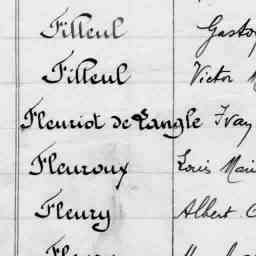 Filleul Gasto
Filleul Victor
Fleuriot de Langle Ivay
Fleuroux Louis Mari
Fleury Albert